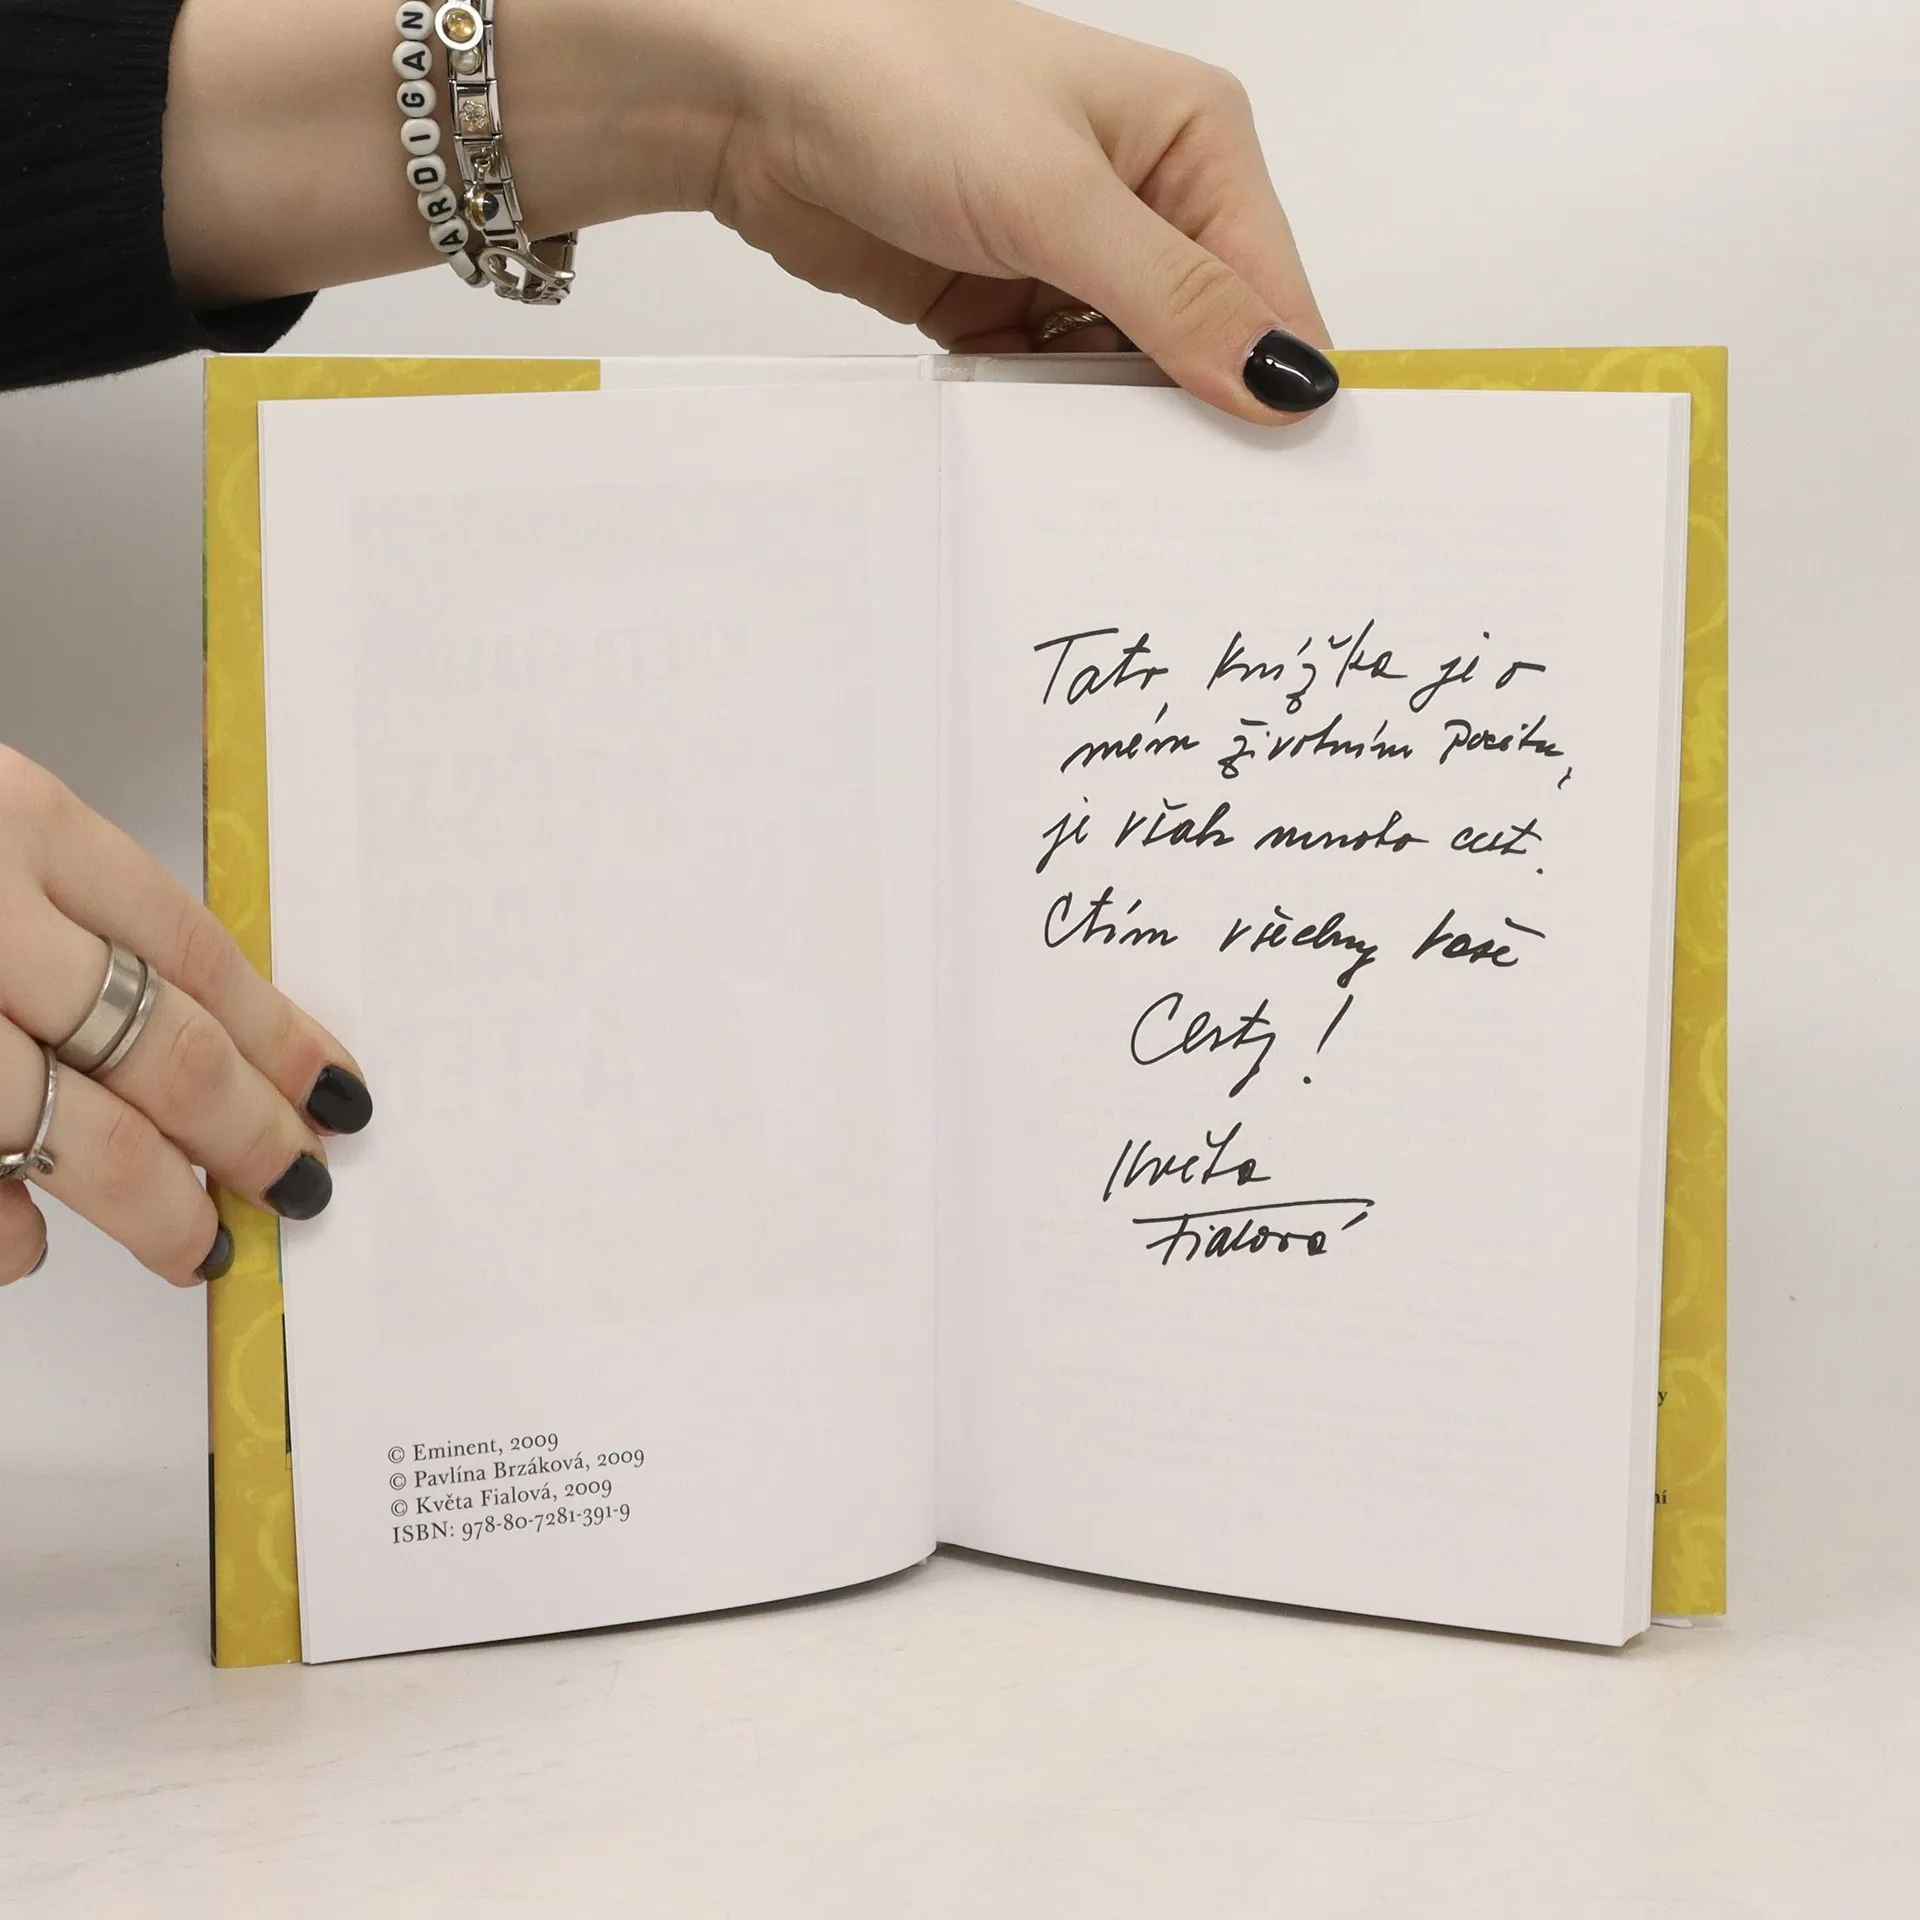 CARDIGAN
Tato knížka je o
mém životním pocitu,
je však mnoho cest.
Ctím všechny vaše
Cesty!
Květa
Fialová
© Eminent, 2009
© Pavlína Brzáková, 2009
© Květa Fialová, 2009
ISBN: 978-80-7281-391-9
y
ní